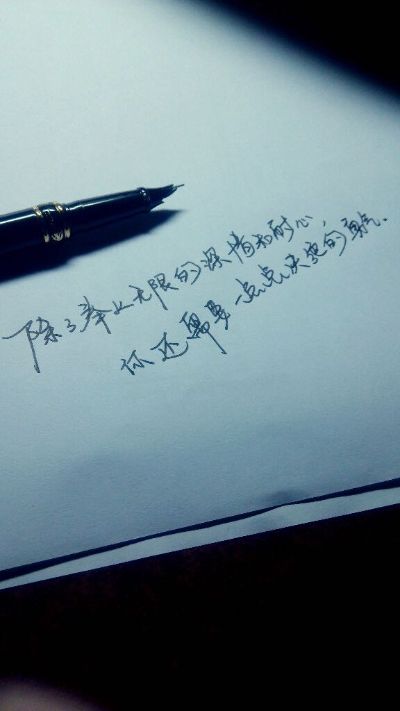 除了奉上无限的深情和耐心,
你还需要一点点失望的勇气.